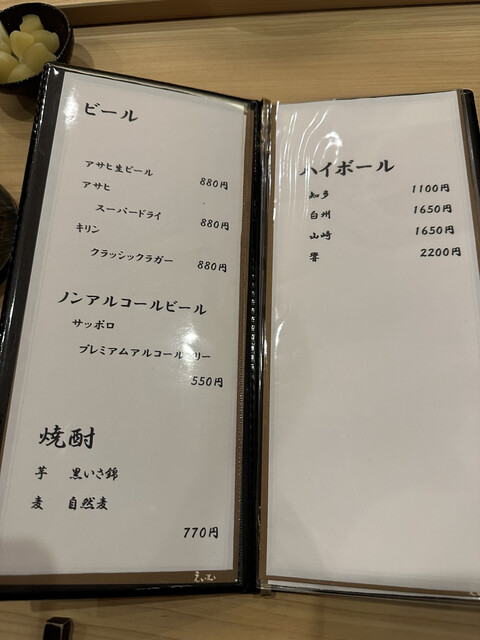 ビール
アサヒ生ビール 880円
アサヒ
スーパードライ 880円
キリン
クラッシックラガー 880円
ノンアルコールビール
サッポロ
プレミアムアルコール リー
550円
焼酎
芋 黒いさ錦
麦 自然麦
770円
ハイボール
知多 1100円
白州 1650円
山崎 1650円
響 2200円